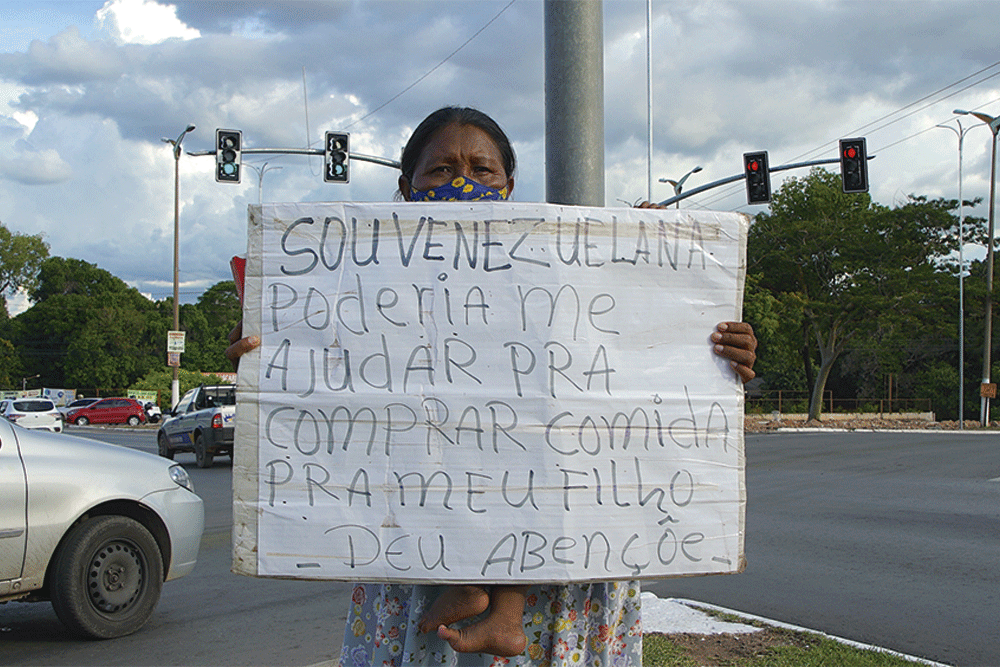 SOU VENEZUELANA
PodeRiA me
AjudAR PRA
COMPRAR ComidA
PRA MEU FILHO
- DEU ABENÇÕE -